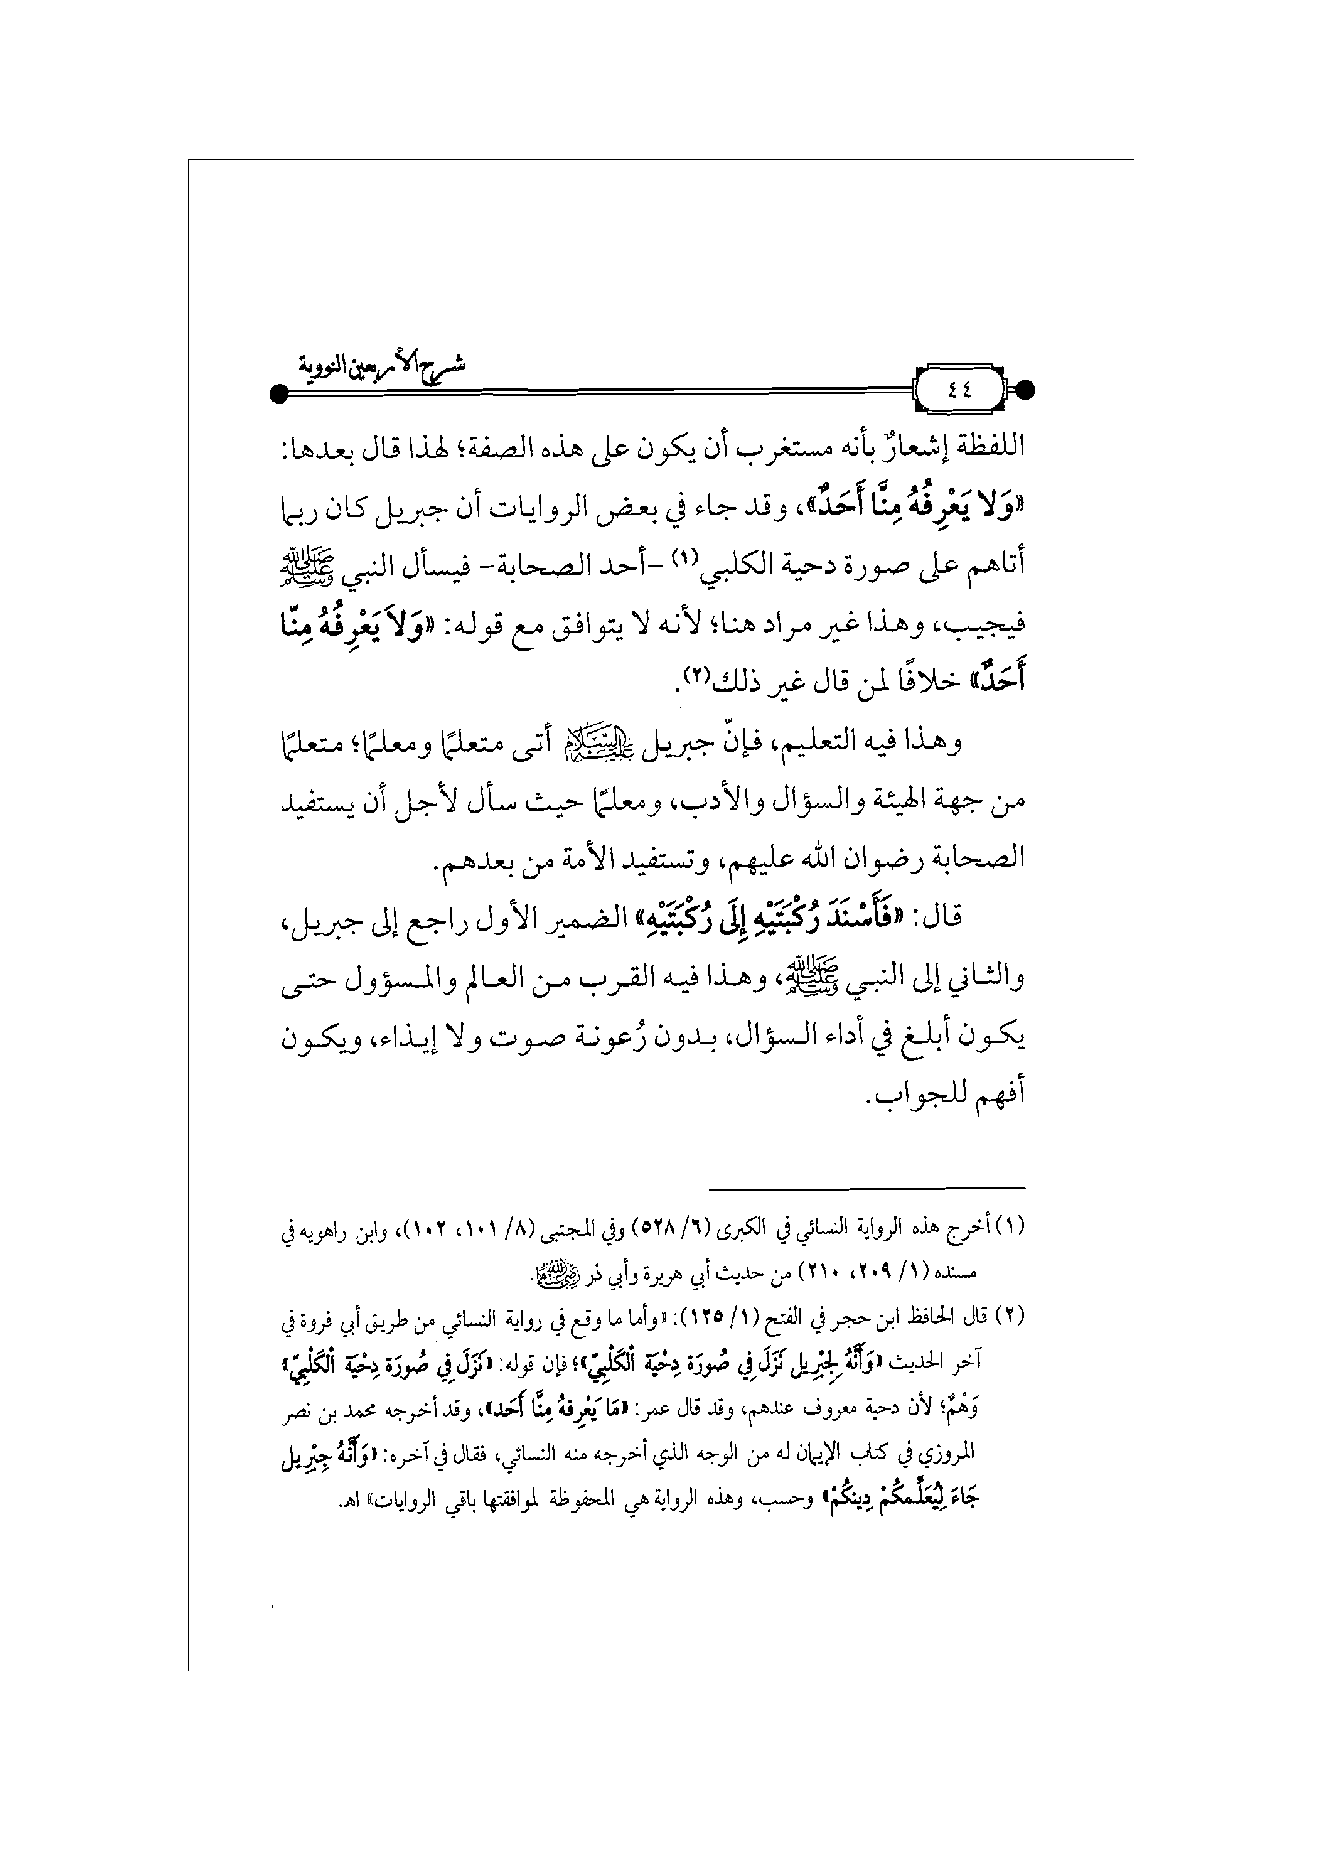 شرح الأربعين النووية
٤٤
اللفظة إشعارٌ بأنه مستغرب أن يكون على هذه الصفة؛ لهذا قال بعدها:
«وَلا يَعْرِفُهُ مِنَّا أَحَدٌ»، وقد جاء في بعض الروايات أن جبريل كان ربما
أتاهم على صورة دحية الكلبي(١) -أحد الصحابة- فيسأل النبي ﷺ
فيجيب، وهذا غير مراد هنا؛ لأنه لا يتوافق مع قوله: «وَلاَ يَعْرِفُهُ مِنّا
أَحَدٌ» خلافًا لمن قال غير ذلك(٢).
وهذا فيه التعليم، فإنّ جبريل عليه السلام أتى متعلمًا ومعلمًا؛ متعلمًا
من جهة الهيئة والسؤال والأدب، ومعلمًا حيث سأل لأجل أن يستفيد
الصحابة رضوان الله عليهم، وتستفيد الأمة من بعدهم.
قال: «فَأَسْنَدَ رُكْبَتَيْهِ إِلَى رُكْبَتَيْهِ» الضمير الأول راجع إلى جبريل،
والثاني إلى النبي ﷺ، وهذا فيه القرب من العالم والمسؤول حتى
يكون أبلغ في أداء السؤال، بدون رُعونة صوت ولا إيذاء، ويكون
أفهم للجواب.
(١) أخرج هذه الرواية النسائي في الكبرى (٦/ ٥٢٨) وفي المجتبى (٨/ ١٠١، ١٠٢)، وابن راهويه في
مسنده (١/ ٢٠٩، ٢١٠) من حديث أبي هريرة وأبي ذر رضي الله عنهما.
(٢) قال الحافظ ابن حجر في الفتح (١/ ١٢٥): «وأما ما وقع في رواية النسائي من طريق أبي فروة في
آخر الحديث «وَأَنَّهُ لَجِبْرِيل نَزَلَ فِي صُورَة دِحْيَة الْكَلْبِيّ»؛ فإن قوله: «نَزَلَ فِي صُورَة دِحْيَة الْكَلْبِيّ»
وَهْمٌ؛ لأن دحية معروف عندهم، وقد قال عمر: «مَا يَعْرِفهُ مِنَّا أَحَد»، وقد أخرجه محمد بن نصر
المروزي في كتاب الإيمان له من الوجه الذي أخرجه منه النسائي، فقال في آخره: «وَأَنَّهُ جِبْرِيل
جَاءَ لِيُعَلِّمكُمْ دِينكُمْ» وحسب، وهذه الرواية هي المحفوظة لموافقتها باقي الروايات» اهـ.